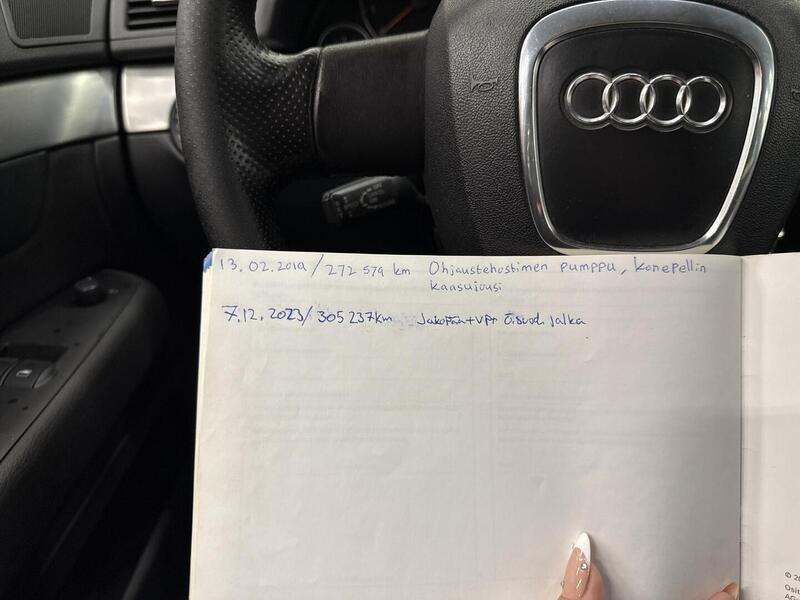 13.02.2019/272 579 km Ohjaustehostimen pumppu, konepellin
kaasujousi
7.12.2023/305 237km Jakopää+VP+ öisuod. jalka
© 20
Osit